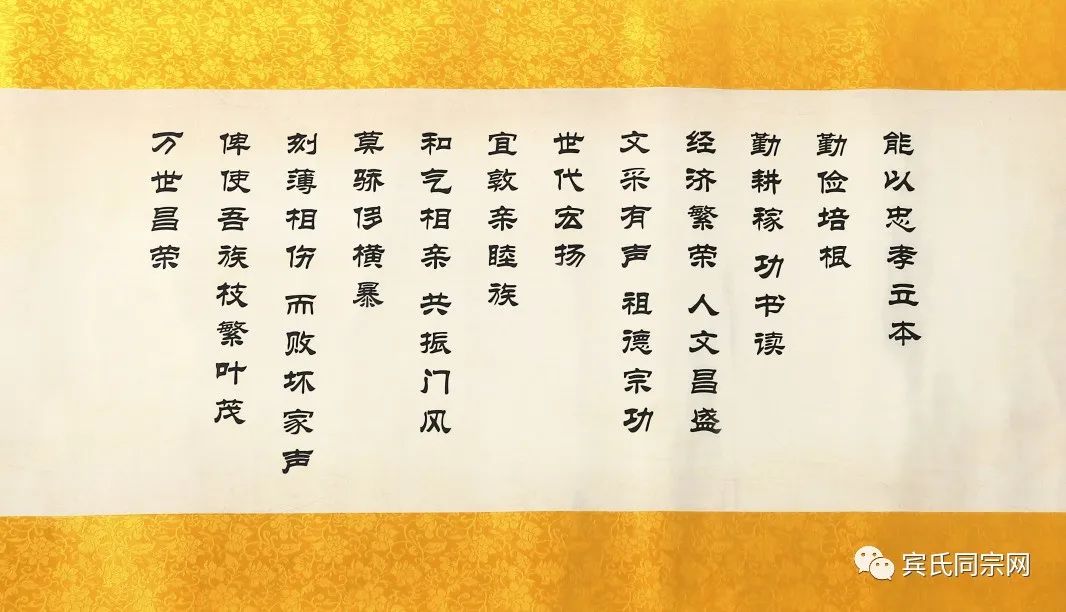 能以忠孝立本
勤俭培根
勤耕稼 功书读
经济繁荣 人文昌盛
文采有声 祖德宗功
世代宏扬
宜敦亲睦族
和气相亲 共振门风
莫骄侈横暴
刻薄相伤 而败坏家声
俾使吾族枝繁叶茂
万世昌荣
宾氏同宗网